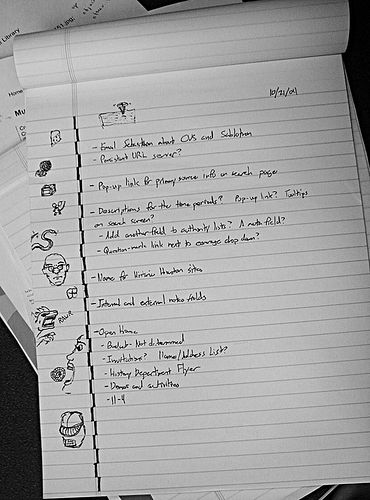 Library
Home
Mu
10/21/04
- Email Sebastian about CVS and
- Persistent URL server?
- Pop-up link for primary source info on search page
- Descriptions for the time periods? Pop-up link? Tooltips
on search screen?
- Add another field to authority lists? A note field?
- Question-mark link next to coverage drop down?
- Name for Historic Houston sites
- Internal and external notes fields
RAWR
- Open House
- Budget - Not determined
- Invitations? Names/Address List?
- History Department Flyer
- Demos and activities
- 11-4